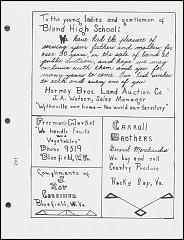 To the young ladies and gentlemen of
Bland High School:
We have had the pleasure of
serving your fathers and mothers for
over 30 years, in the sale of land at
public auction, and hope we may
continue with them and you for
many years to come. Our best wishes
to each and every one of you.
Horney Bros. Land Auction Co.
J.A. Watson, Sales Manager
"Wytheville our home - the world our territory"
Freeman Market
"We handle Fruits
and
Vegetables"
Phone 9519
Bluefield, W. Va.
Compliments of
&
Bluefield, W. Va.
Carroll
Brothers
General Merchandise
We buy and sell
Country Produce
Rocky Gap, Va.